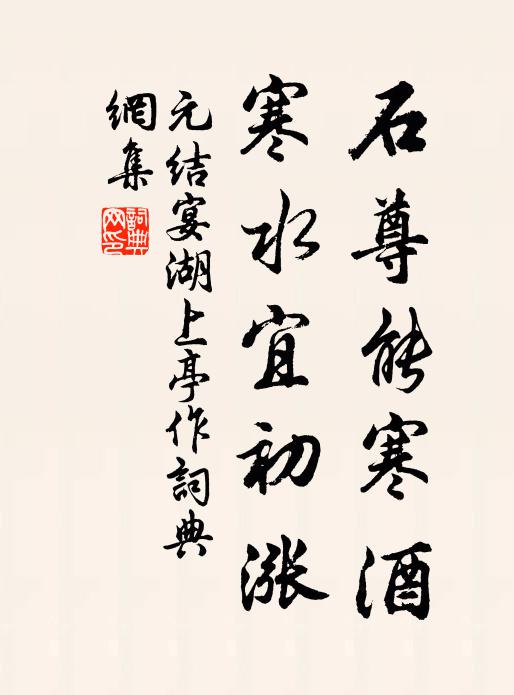 石尊能寒酒
寒水宜初漲
元結宴湖上亭作詞典
網集
詞典網印